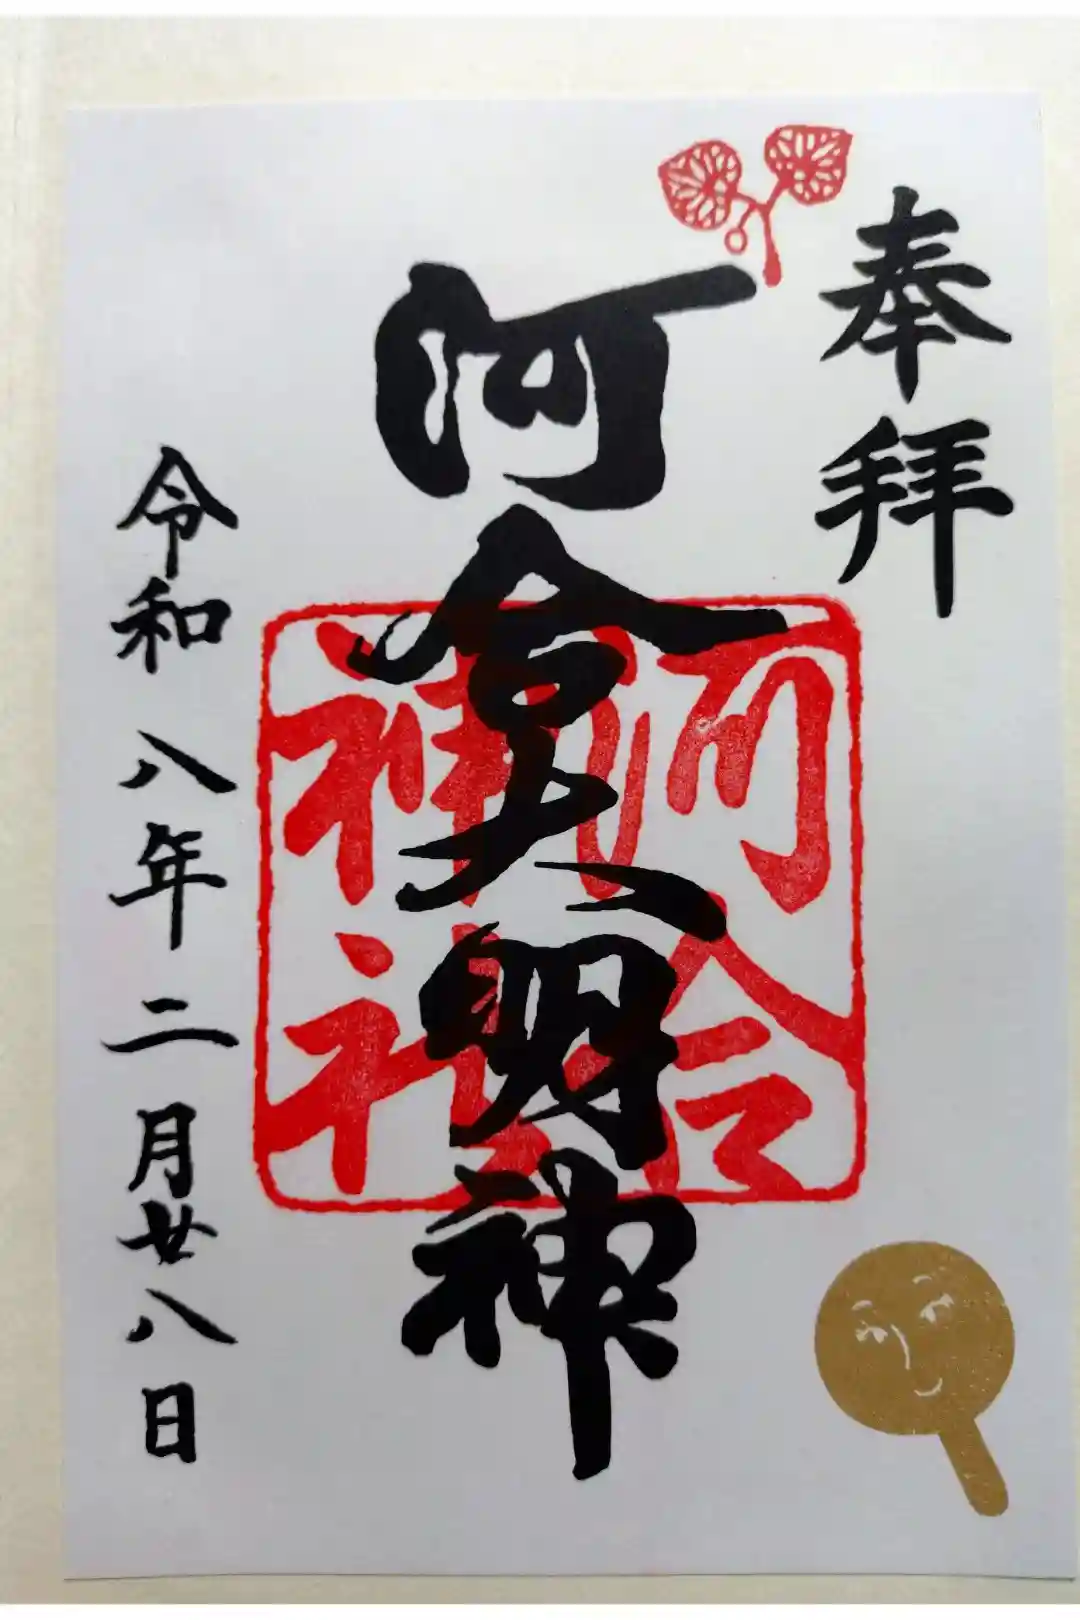 奉拝
河合大明神
河合
神社
令和八年二月廿八日